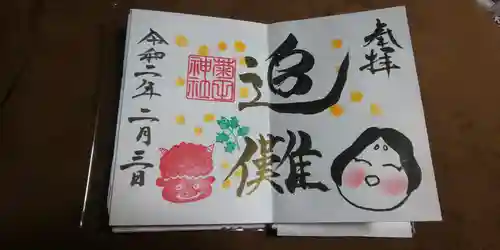 奉拝
追儺
神社
令和二年二月三日